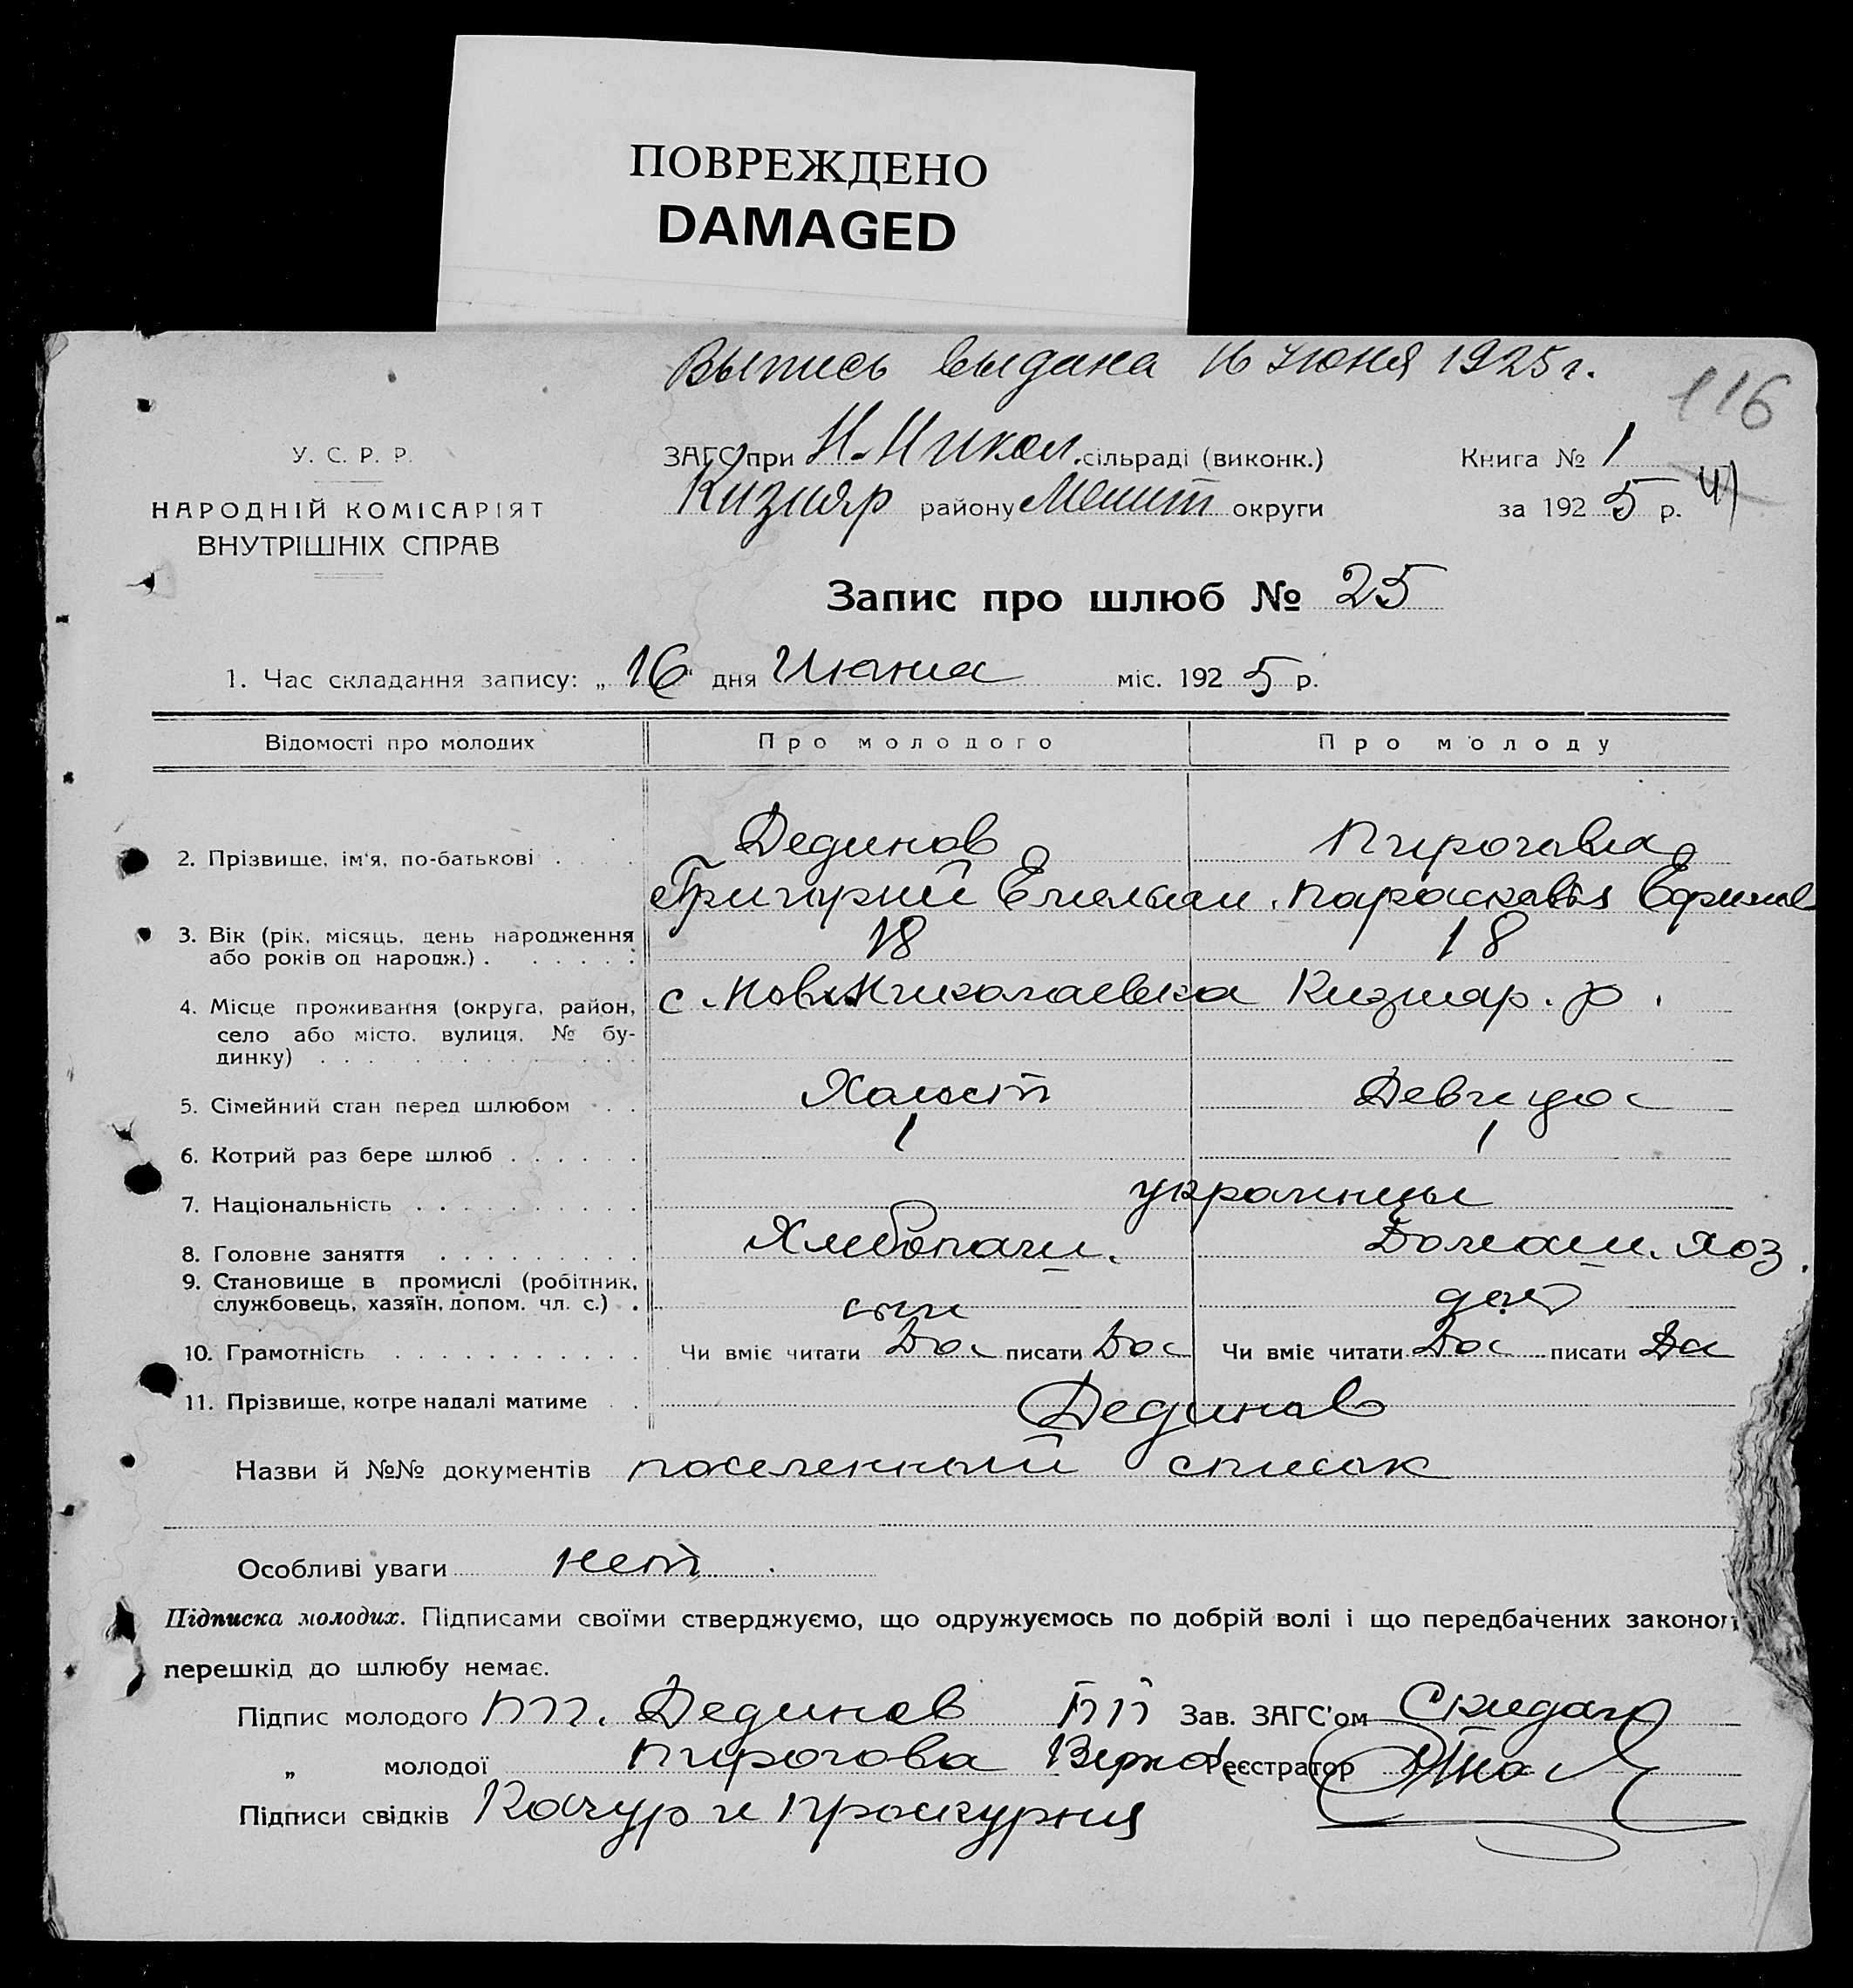 ПОВРЕЖДЕНО
DAMAGED
Выпись выдана 16 Июня 1925 г.
116
У. С. Р. Р.
НАРОДНІЙ КОМІСАРІЯТ
ВНУТРІШНІХ СПРАВ
ЗАГС при Н. Никол. сільраді (виконк.)
Кизияр району Мелит округи
Книга № 1
за 1925 р.
Запис про шлюб № 25
1. Час складання запису: „16" дня Июня міс. 1925 р.
Відомості про молодих Про молодого Про молоду
2. Прізвище, ім'я, по-батькові . Дединов Пирогова
Григорий Емельян. Парасковья Ефимов
3. Вік (рік, місяць, день народження
або років од народж.) . . . . . . 18 18
4. Місце проживання (округа, район,
село або місто, вулиця, № бу-
динку) с. Ново Николаевка Кизияр. р.
5. Сімейний стан перед шлюбом . . Холост Девица
6. Котрий раз бере шлюб . . . . . . 1 1
7. Національність . . . . . . . . . . украинцы
8. Головне заняття . . . . . . . . . Хлебопаш. Домаш. хоз.
9. Становище в промислі (робітник,
службовець, хазяїн, допом. чл. с.) . сын
10. Грамотність . . . . . . . . . . . Чи вміє читати Да писати Да Чи вміє читати Да писати Да
11. Прізвище, котре надалі матиме . . Дединов
Назви й №№ документів поселенный список
Особливі уваги нет
Підписка молодих. Підписами своїми стверджуємо, що одружуємось по добрій волі і що передбачених законом
перешкід до шлюбу немає.
Підпис молодого п п. Дединов Зав. ЗАГС'ом
„ молодої Пирогова Верно Реєстратор
Підписи свідків Качур и Проскурня